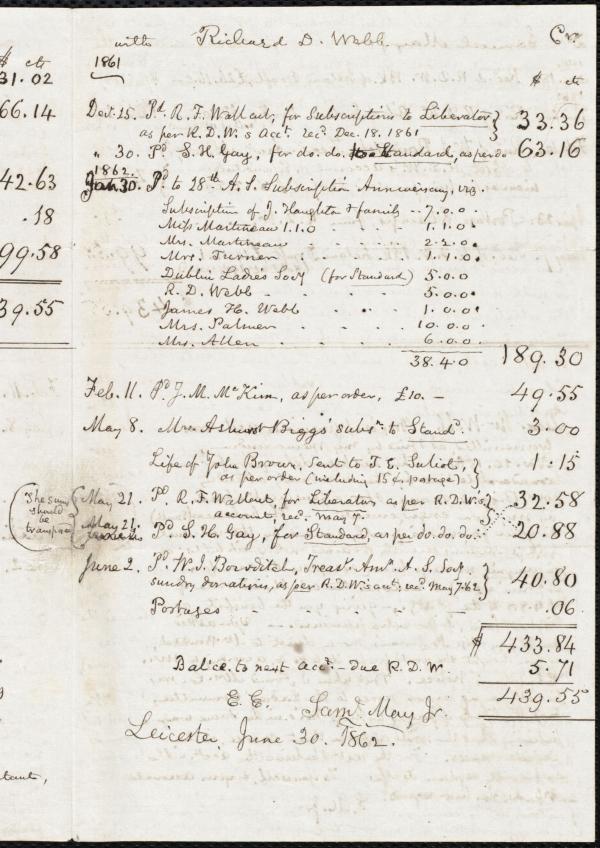 with Richard D. Webb. Cr.
1861
$ cts
$ cts
31.02
66.14
42.63
.18
99.58
39.55
Dec. 25. Pd. R. F. Wallcut, for Subscriptions to Liberator } 33.36
as per R. D. W.'s Acct. recd. Dec. 18. 1861
" 30. Pd. S. H. Gay, for do. do. Standard, as per do 63.16
1862.
Jan 30. Pd to 28th A. S. Subscription Anniversary, viz.
Subscription of J. Haughton & family -- 7.0.0.
Miss Martineau 1.1.0 1.1.0.
Mrs. Martineau 2.2.0.
Mrs. Turner 1.1.0.
Dublin Ladies Socy (for Standard) 5.0.0
R. D. Webb 5.0.0.
James H. Webb 1.0.0.
Mrs. Palmer 10.0.0.
Mrs. Allen 6.0.0
38.4.0 189.30
Feb. 11. Pd J. M. McKim, as per order, £10. - 49.55
May 8. Mrs Ashurst Biggs' subsn. to Standd. 3.00
Life of John Brown, sent to T. E. Suliot, } 1.15
as per order (including 15 c. postage)
The sums should be transposed
May 21. Pd R. F. Wallcut for Liberator as per R.D.W.'s } 32.58
account, recd. May 7.
May 21. Pd S. H. Gay, for Standard, as per do. do. do. 20.88
June 2. Pd W. I. Bowditch, Treasr. Amn. A. S. Socy } 40.80
sundry donations, as per R.D.W.'s acct. recd. May 7. 62
Postages .06
$ 433.84
Bal'ce. to next acct. - due R. D. W. 5.71
439.55
E. E. Saml. May Jr.
Leicester June 30. 1862.